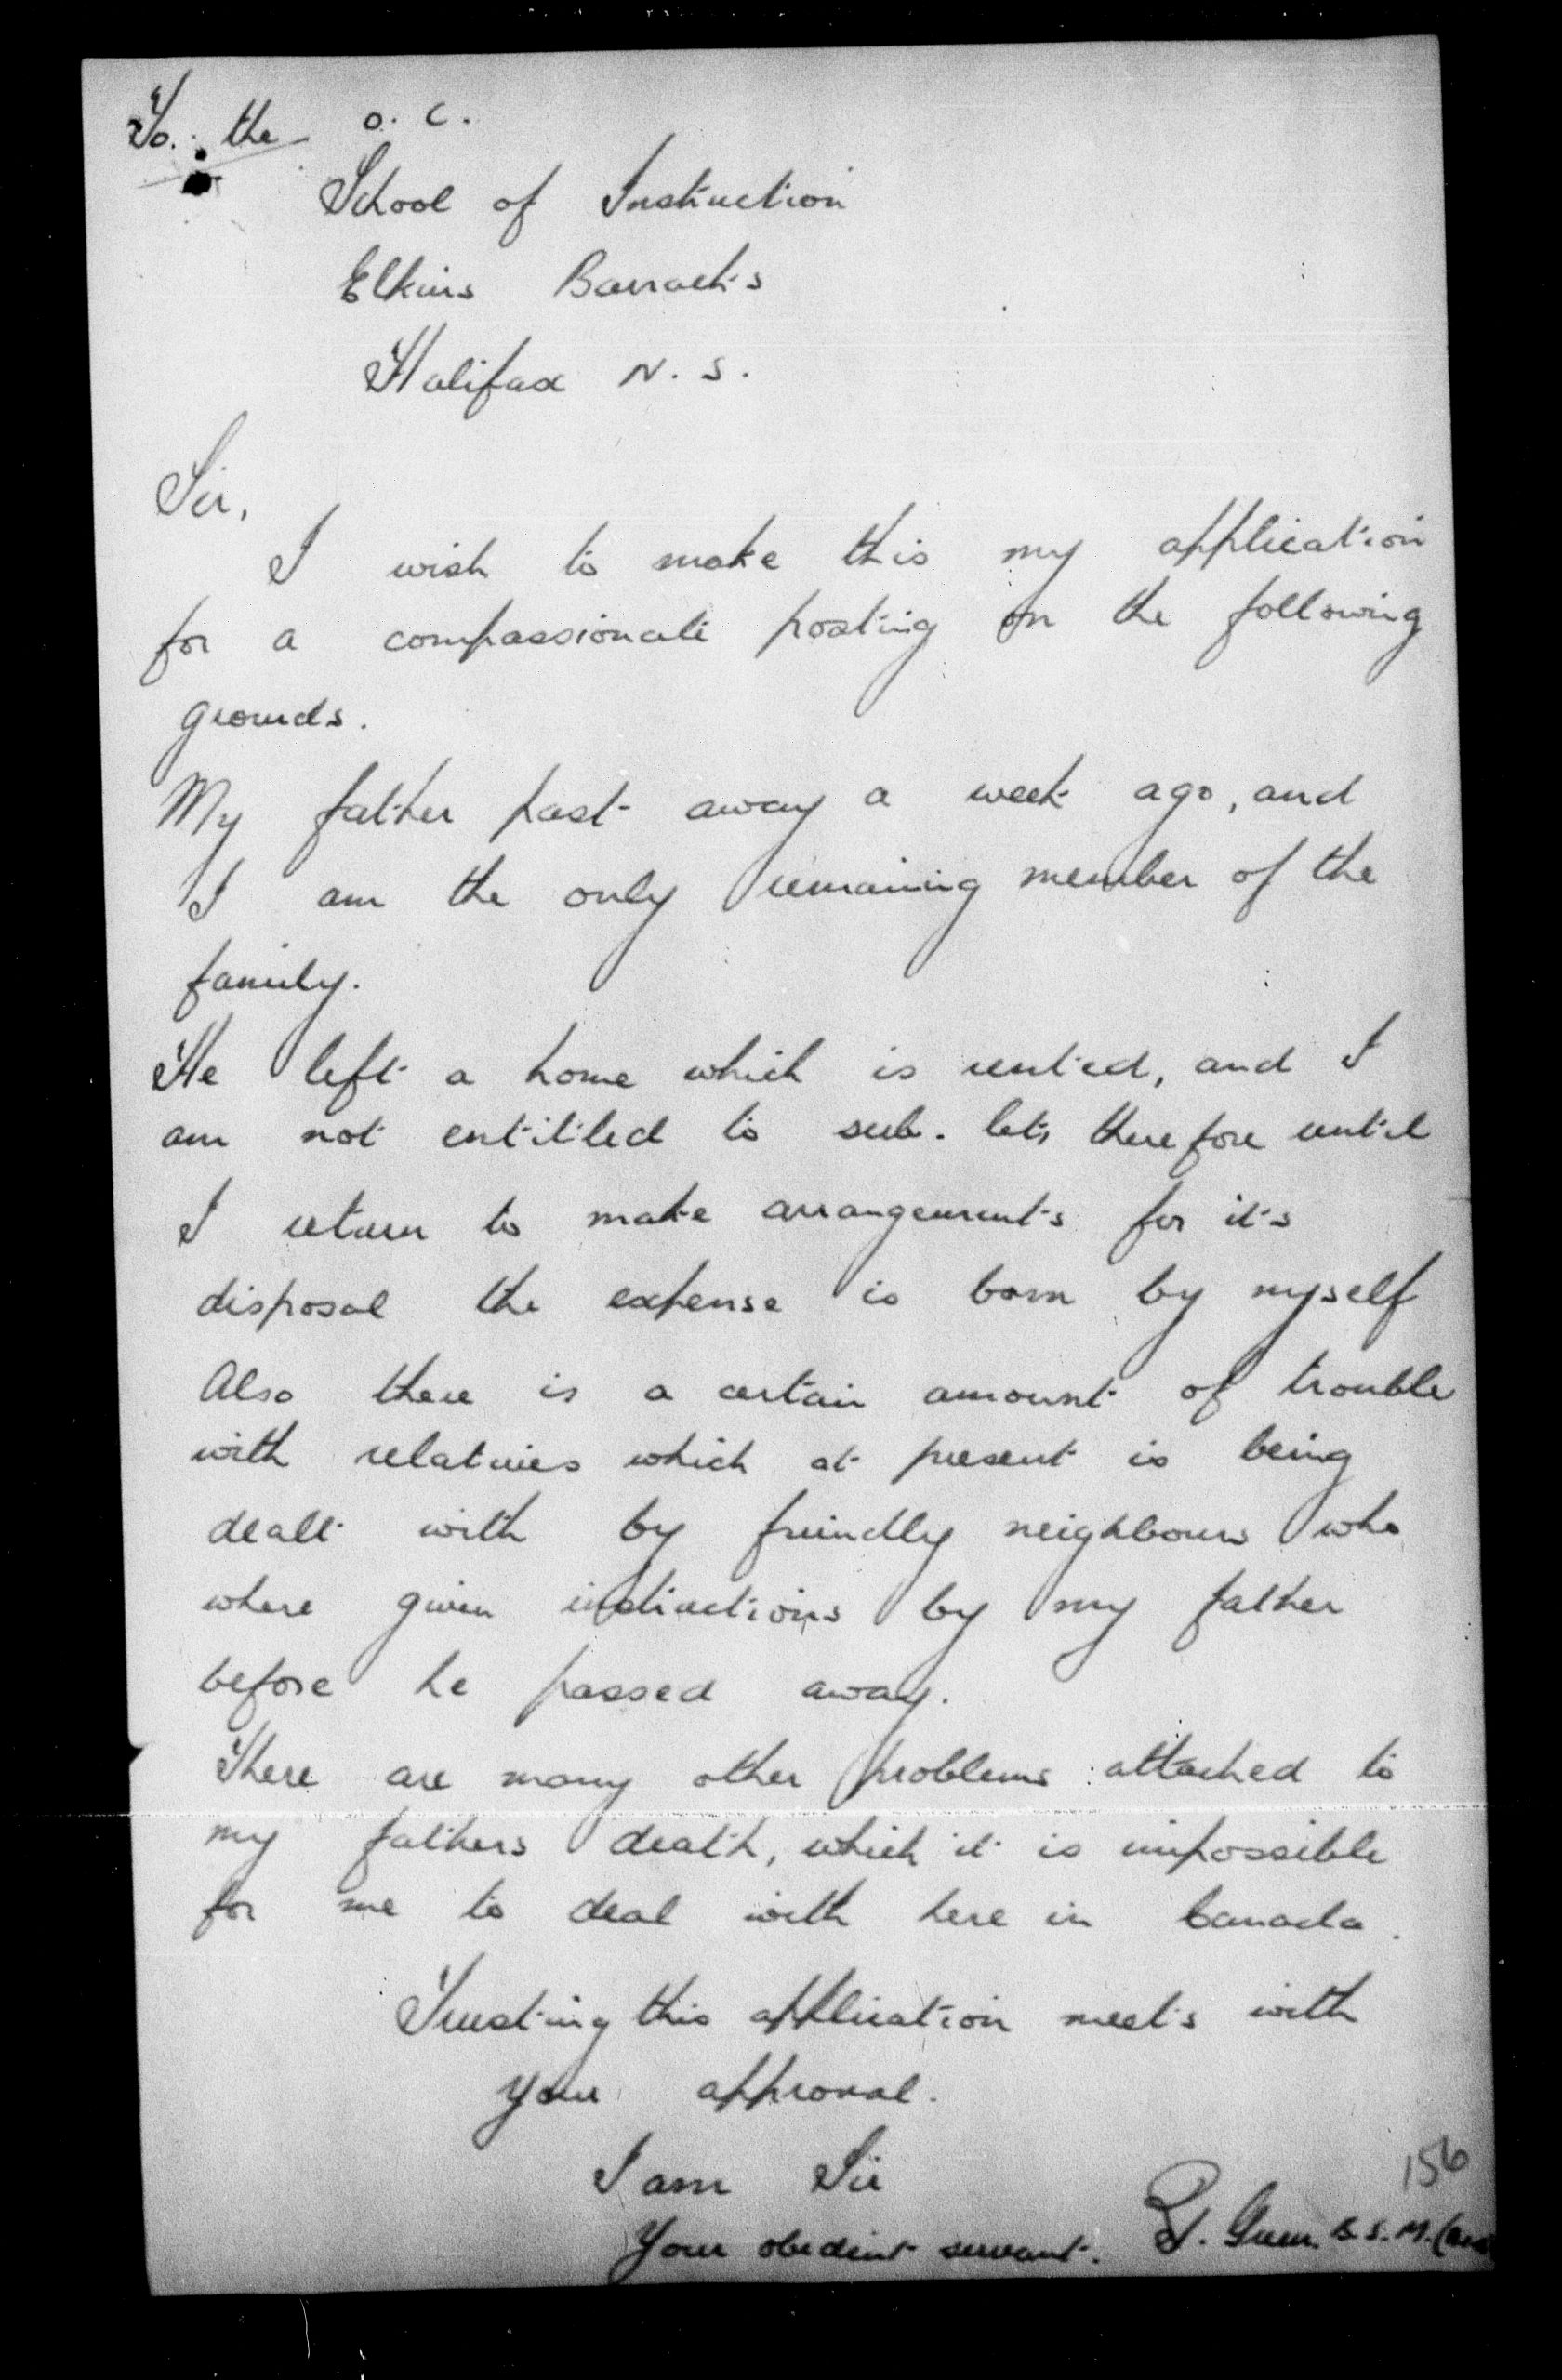 To. the O. C.
School of Instruction
Elkins Barracks
Halifax N. S.
Sir,
I wish to make this my application
for a compassionate posting on the following
grounds.
My father past away a week ago, and
I am the only remaining member of the
family.
He left a home which is rented, and I
am not entitled to sub. let, therefore until
I return to make arrangements for it's
disposal the expense is born by myself
Also there is a certain amount of trouble
with relatives which at present is being
dealt with by friendly neighbours who
where given instructions by my father
before he passed away.
There are many other problems attached to
my fathers death, which it is impossible
for me to deal with here in Canada.
Trusting this application meets with
your approval.
I am Sir
156
Your obedient servant. Green. B. S. M.